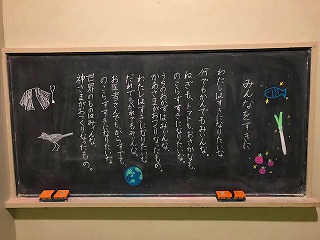 みんなをすきに
わたしはすきになりたいな、
何でもかんでもみいんな。
ねぎも、トマトも、おさかなも、
のこらずすきになりたいな。
うちのおかずは、みいんな、
かあさまがおつくりなったもの。
わたしはすきになりたいな、
だれでもかれでもみいんな。
お医者さんでも、からすでも、
のこらずすきになりたいな。
世界のものはみいんな、
神さまがおつくりなったもの。